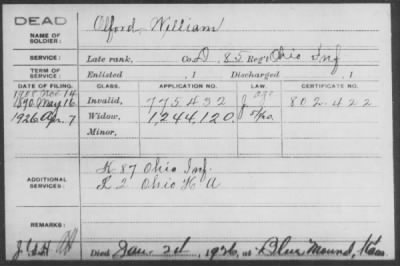 DEAD
NAME OF SOLDIER: Alford, William
SERVICE: Late rank, Co. D, 85 Reg't Ohio Inf
TERM OF SERVICE: Enlisted , 1 Discharged , 1
DATE OF FILING. CLASS. APPLICATION NO. LAW. CERTIFICATE NO.
1908 Nov. 14 age
1890 May 16 Invalid, 775452 J 802.422
1926 Apr. 7 Widow, 1244,120.
Minor,
ADDITIONAL SERVICES: K 87 Ohio Inf.
L 2 Ohio H A
REMARKS:
Died Jan. 2d, 1926, at Blue Mound, Kans